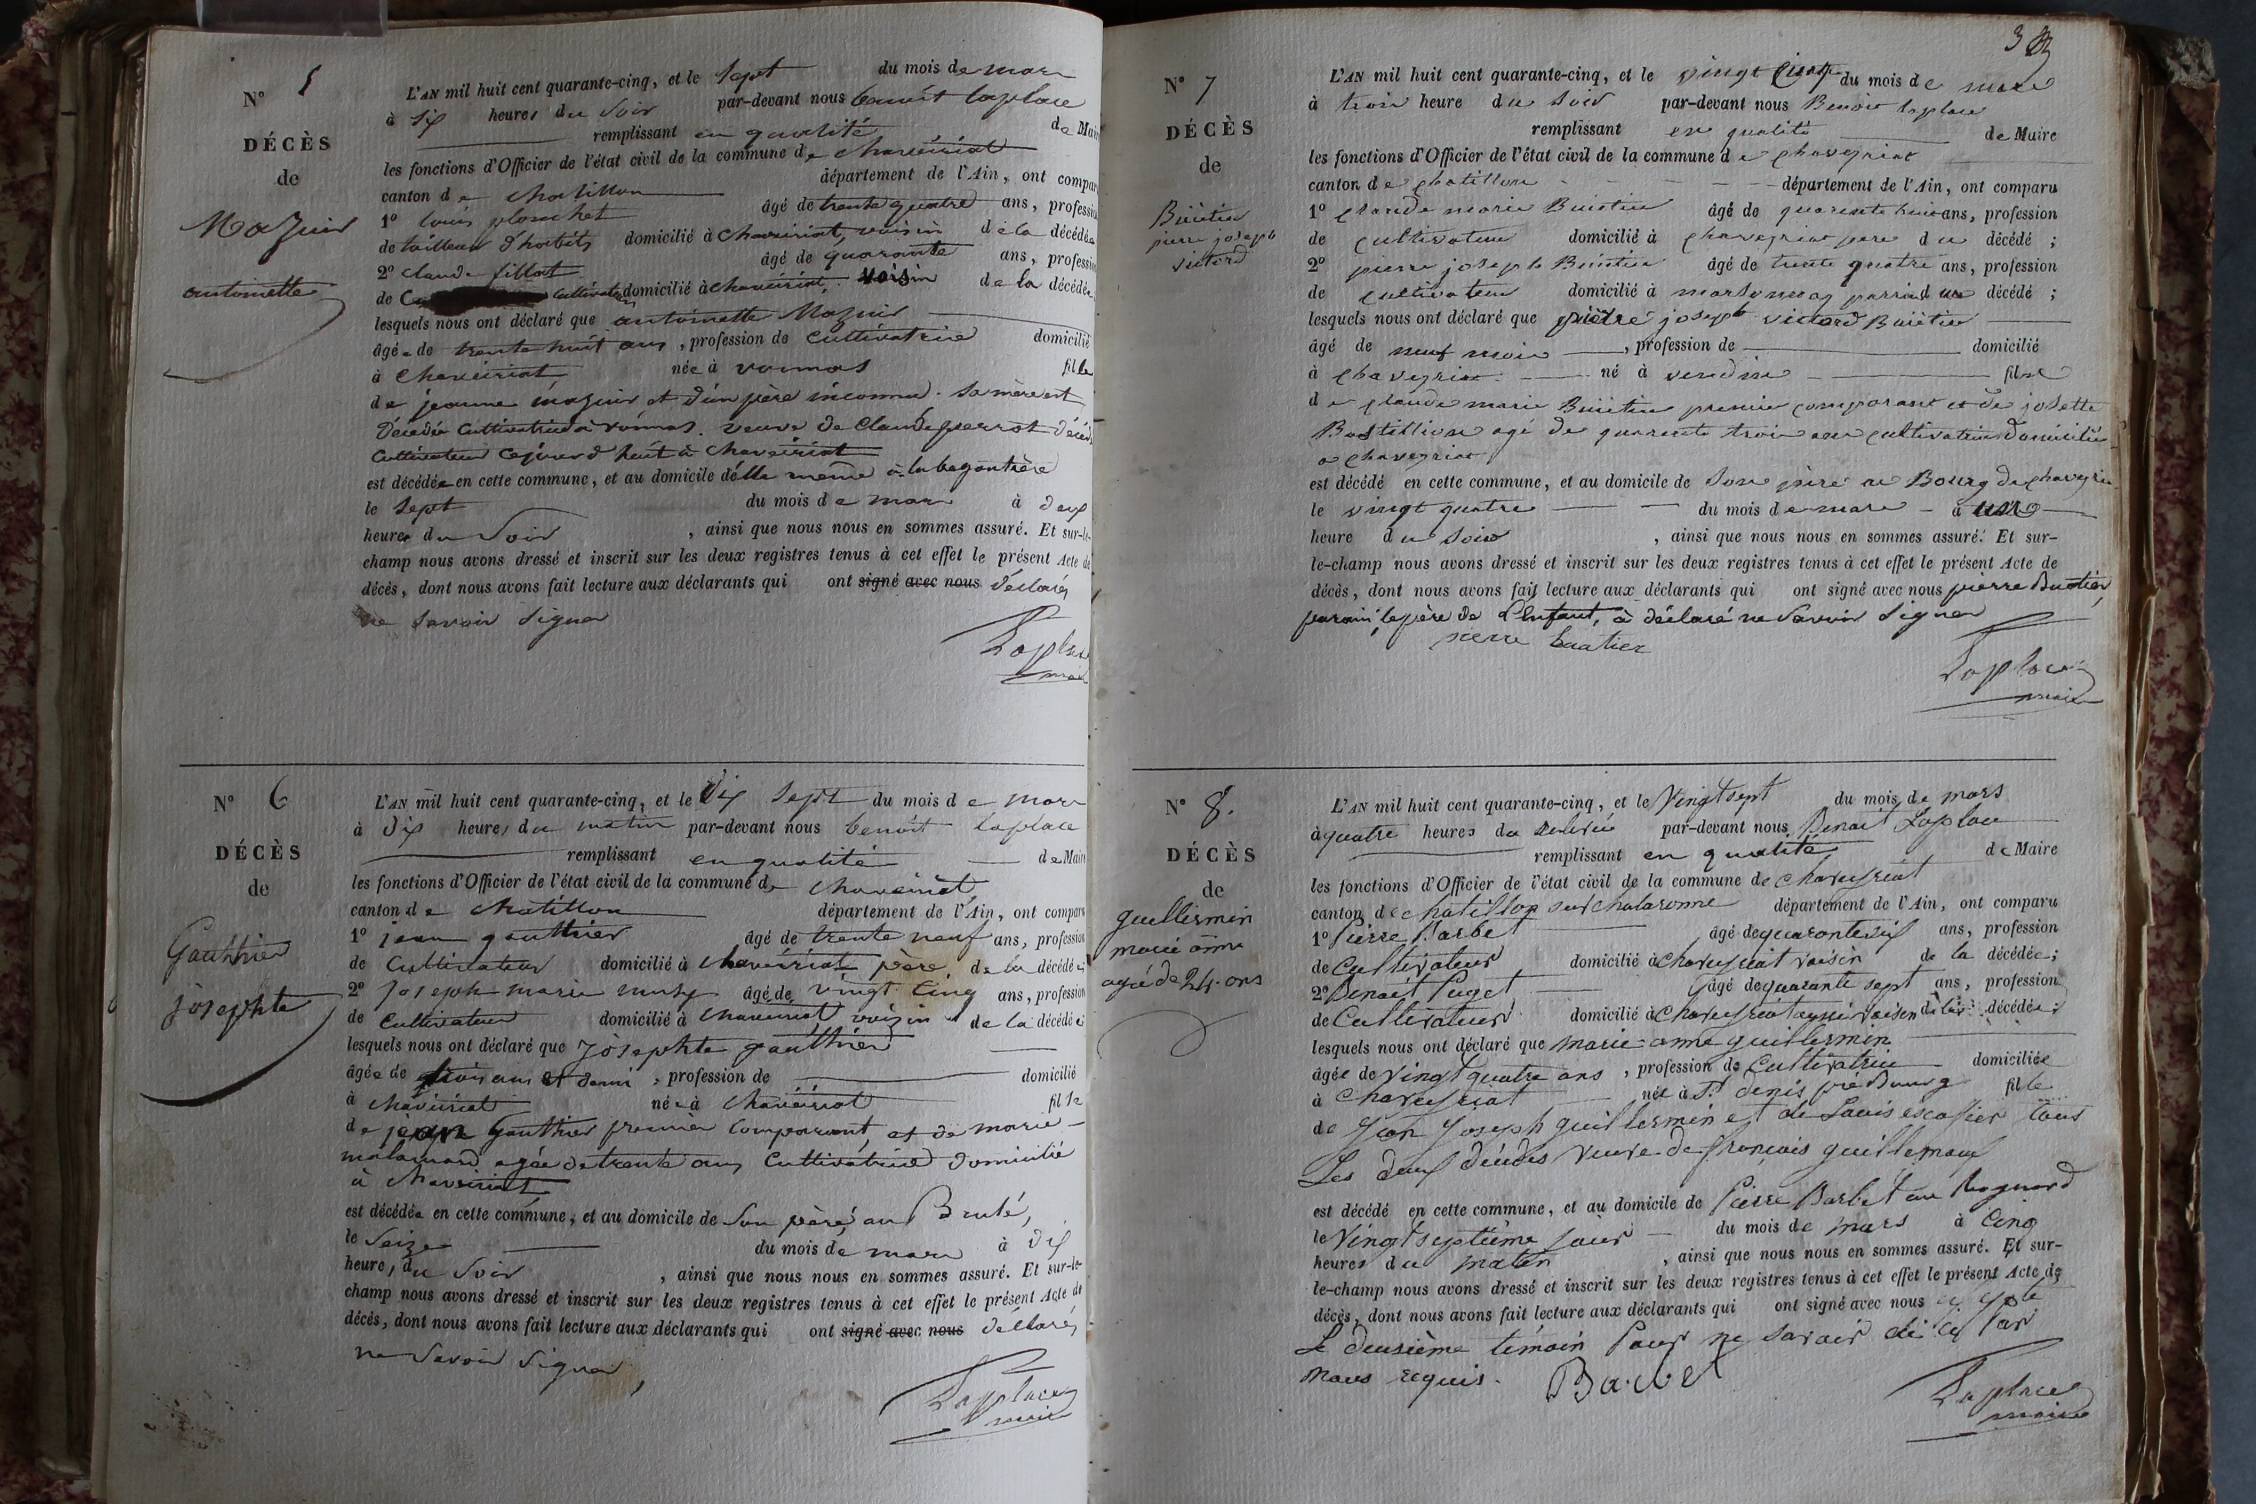 N° 5
DÉCÈS
de
Mazuir
antoinette
L'AN mil huit cent quarante-cinq, et le sept du mois de mars
à six heures du soir par-devant nous benoit laplace
remplissant en qualité de Maire
les fonctions d'Officier de l'état civil de la commune de chaveiriat
canton de chatillon département de l'Ain, ont compar
1° louis planchet âgé de trente quatre ans, profession
de tailleur d'habits domicilié à chaveiriat, voisin de la décédée
2° claude fillat âgé de quarante ans, profession
de cultivateur domicilié à chaveiriat, voisin de la décédée
lesquels nous ont déclaré que antoinette Mazuir
âgée de trente huit ans, profession de cultivatrice domicilié
à chaveiriat née à vonnas fille
de jeanne mazuir et d'un père inconnu. sa mère est
décédée cultivatrice à vonnas. veuve de claude perrot décédé
cultivateur cejourd huit à chaveiriat
est décédée en cette commune, et au domicile d'elle même à la
le sept du mois de mars à deux
heures du soir, ainsi que nous nous en sommes assuré. Et sur-le-
champ nous avons dressé et inscrit sur les deux registres tenus à cet effet le présent Acte de
décès, dont nous avons fait lecture aux déclarants qui ont signé avec nous déclarés
ne savoir signer
Laplace
maire
N° 6
DÉCÈS
de
Gauthier
josephte
L'AN mil huit cent quarante-cinq, et le dix sept du mois de mars
à dix heures du matin par-devant nous benoit laplace
remplissant en qualité de Maire
les fonctions d'Officier de l'état civil de la commune de chaveiriat
canton de chatillon département de l'Ain, ont comparu
1° jean gauthier âgé de trente neuf ans, profession
de cultivateur domicilié à chaveiriat père de la décédée
2° joseph marie âgé de vingt cinq ans, profession
de cultivateur domicilié à chaveiriat voisin de la décédée
lesquels nous ont déclaré que josephte gauthier
âgée de trois ans et demi, profession de domicilié
à chaveiriat née à chaveiriat fille
de jean gauthier premier comparant, et de marie
malamard agée de trente ans cultivatrice domicilié
à chaveiriat
est décédée en cette commune, et au domicile de son père, au Brulé,
le seize du mois de mars à dix
heures du soir, ainsi que nous nous en sommes assuré. Et sur-le-
champ nous avons dressé et inscrit sur les deux registres tenus à cet effet le présent Acte de
décès, dont nous avons fait lecture aux déclarants qui ont signé avec nous déclarés
ne savoir signer,
Laplace
maire
3
N° 7
DÉCÈS
de
Buiatier
pierre joseph
victord
L'AN mil huit cent quarante-cinq, et le vingt cinq du mois de mars
à trois heure du soir par-devant nous Benoit laplace
remplissant en qualité de Maire
les fonctions d'Officier de l'état civil de la commune de chaveyriat
canton de chatillon département de l'Ain, ont comparu
1° claude marie Buiatier âgé de quarente huit ans, profession
de cultivateur domicilié à chaveyriat pere du décédé;
2° pierre joseph Buiatier âgé de trente quatre ans, profession
de cultivateur domicilié à marsonnas parrin du décédé;
lesquels nous ont déclaré que pierre joseph victord Buiatier
âgé de neuf mois, profession de domicilié
à chaveyriat né à vendin fils
de claude marie Buiatier premier comparant et de josette
Bastillion agé de quarente trois ans cultivateur domicilié
a chaveyriat
est décédé en cette commune, et au domicile de son père au Bourg de chaveyria
le vingt quatre du mois de mars à une
heure du soir, ainsi que nous nous en sommes assuré. Et sur-
le-champ nous avons dressé et inscrit sur les deux registres tenus à cet effet le présent Acte de
décès, dont nous avons fait lecture aux déclarants qui ont signé avec nous pierre Buatier,
parain, le père de L'enfant, à déclaré ne savoir signer
pierre buatier
Laplace
maire
N° 8.
DÉCÈS
de
guillermin
marie anne
agé de 24 ans
L'AN mil huit cent quarante-cinq, et le Vingt sept du mois de mars
à quatre heures du par-devant nous Benoit Laplace
remplissant en qualité de Maire
les fonctions d'Officier de l'état civil de la commune de chaveyriat
canton de chatillon sur chalaronne département de l'Ain, ont comparu
1° Pierre Barbet âgé de quarante six ans, profession
de cultivateur domicilié à chaveyriat voisin de la décédée;
2° Benoit Puget âgé de quarante sept ans, profession
de Cultivateur domicilié à chaveyriat aussi voisin de la décédée;
lesquels nous ont déclaré que marie anne guillermin
âgée de vingt quatre ans, profession de cultivatrice domiciliée
à chaveyriat née à St denis pré Bourg fille
de Jean Joseph guillermin et de Louis escofier tous
Les deux décédés veuve de françois guillemaux
est décédé en cette commune, et au domicile de Pierre Barbet au Rognard
le Vingt septième jour du mois de mars à Cinq
heures du matin, ainsi que nous nous en sommes assuré. Et sur-
le-champ nous avons dressé et inscrit sur les deux registres tenus à cet effet le présent Acte de
décès, dont nous avons fait lecture aux déclarants qui ont signé avec nous
Le deusième témoin Pour ne savoir de ce Par
nous requis. Barbet
Laplace
maire